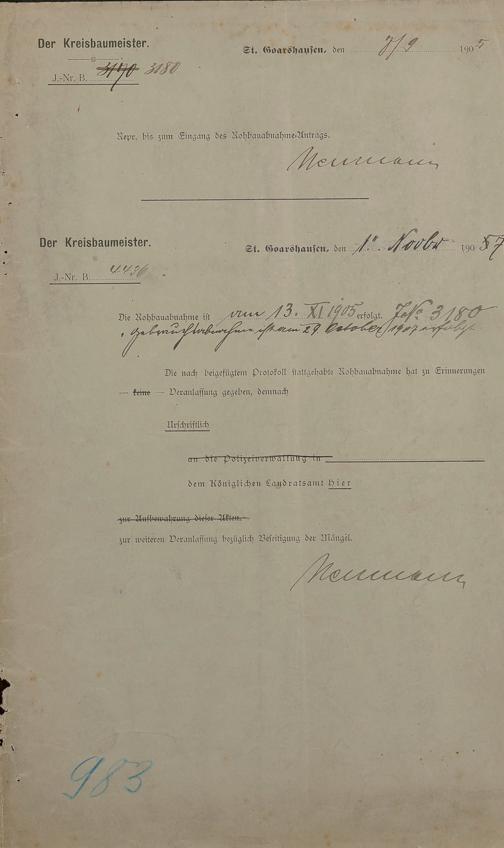 Der Kreisbaumeister.
St. Goarshausen, den 7/9 1905
J.-Nr. B. 3170 3180
Repr. bis zum Eingang des Rohbauabnahme-Antrags.
Neumann
Der Kreisbaumeister.
St. Goarshausen, den 1ⁿ Novbr 1907
J.-Nr. B. 4436
Die Rohbauabnahme ist am 13. XI 1905 erfolgt. J.No 3180
Gebrauchsabnahme ist am 29. October 1907 erfolgt
Die nach beigefügtem Protokoll stattgehabte Rohbauabnahme hat zu Erinnerungen
— keine — Veranlassung gegeben, demnach
Urschriftlich
an die Polizeiverwaltung in
dem Königlichen Landratsamt hier
zur Aufbewahrung dieser Akten.
zur weiteren Veranlassung bezüglich Beseitigung der Mängel.
Neumann
983